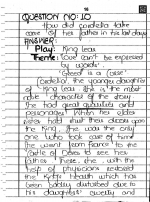 16
QUESTION NO: 10
How did cordelia take
care of her father in his last days
ANSWER:
Play: King lear
Theme: "Love can't be expressed
by words".
"Greed is a curse".
Cordelia, the younger daughter
of King lear. She is the most
character of the story.
She had great qualities and
When her elder
sisters had shut their doors upon
the King, she was the only
one who took care of him
She went from France to the
Battle of Dover to see her
father. There, she, with the
help of physicians restored
the King's health which had
been badly disturbed due to
his daughters' cruelty and